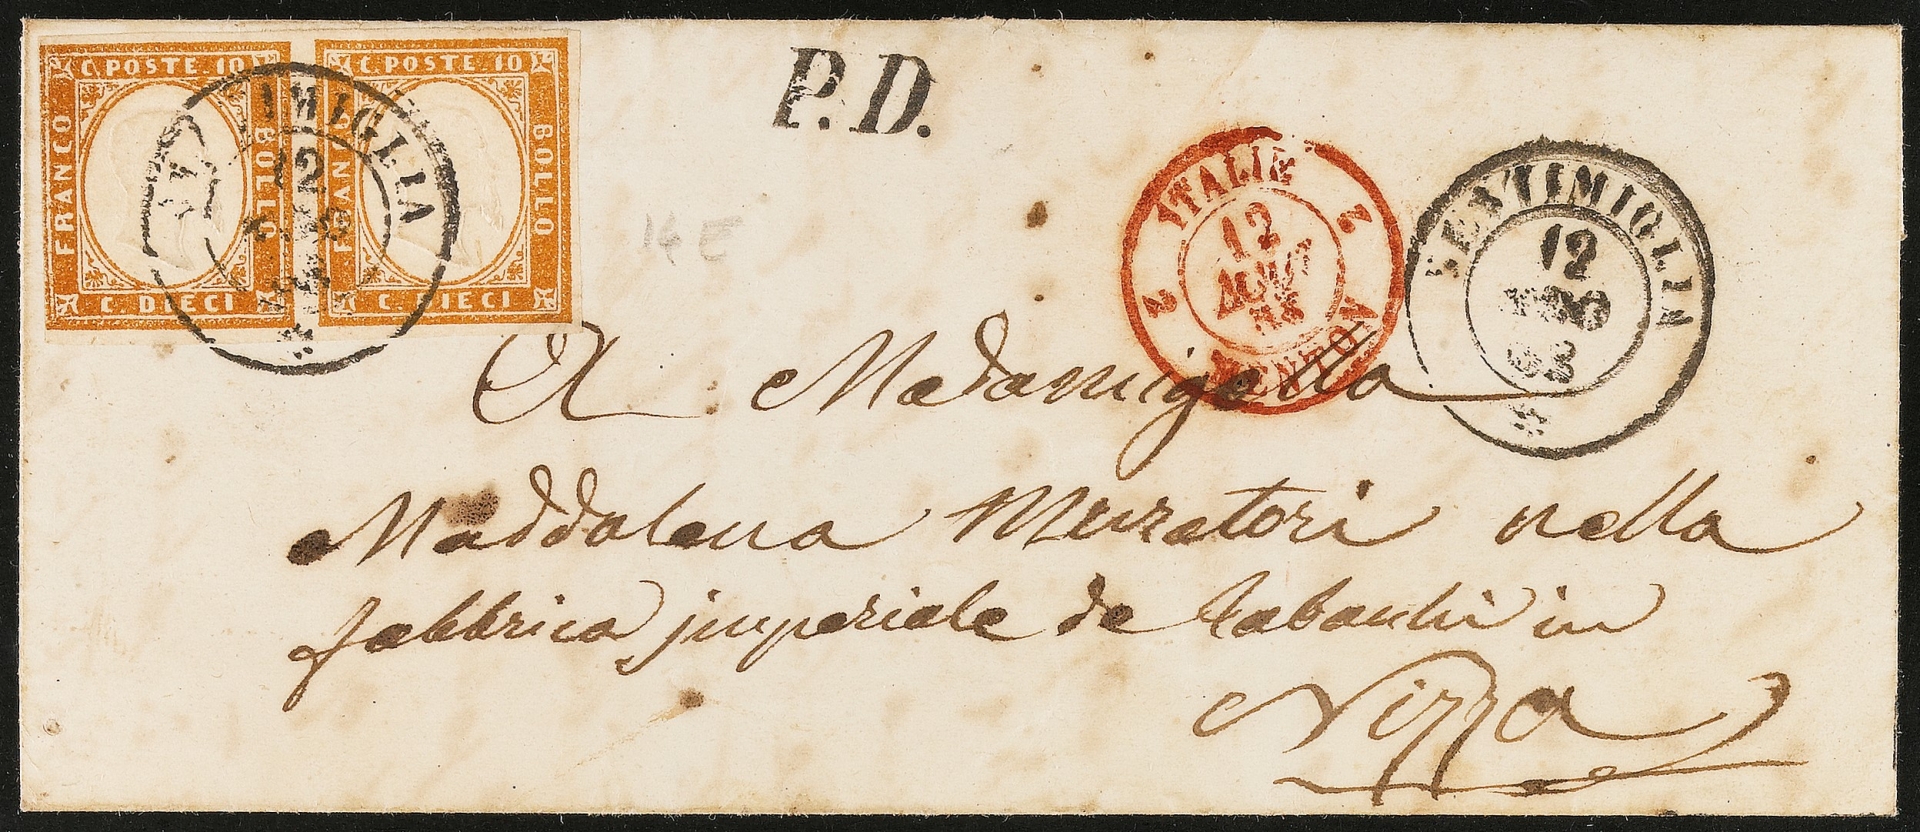 C. POSTE. 10
FRANCO
BOLLO
C. DIECI
C. POSTE 10
FRANCO
BOLLO
C. DIECI
VENTIMIGLIA
12
P.D.
ITALIE
2 2
12
AOUT
MENTON
VENTIMIGLIA
12
AGO
62
14 E
A Madamigella
Maddalena Muratori nella
fabbrica imperiale de Tabachi in
Nizza